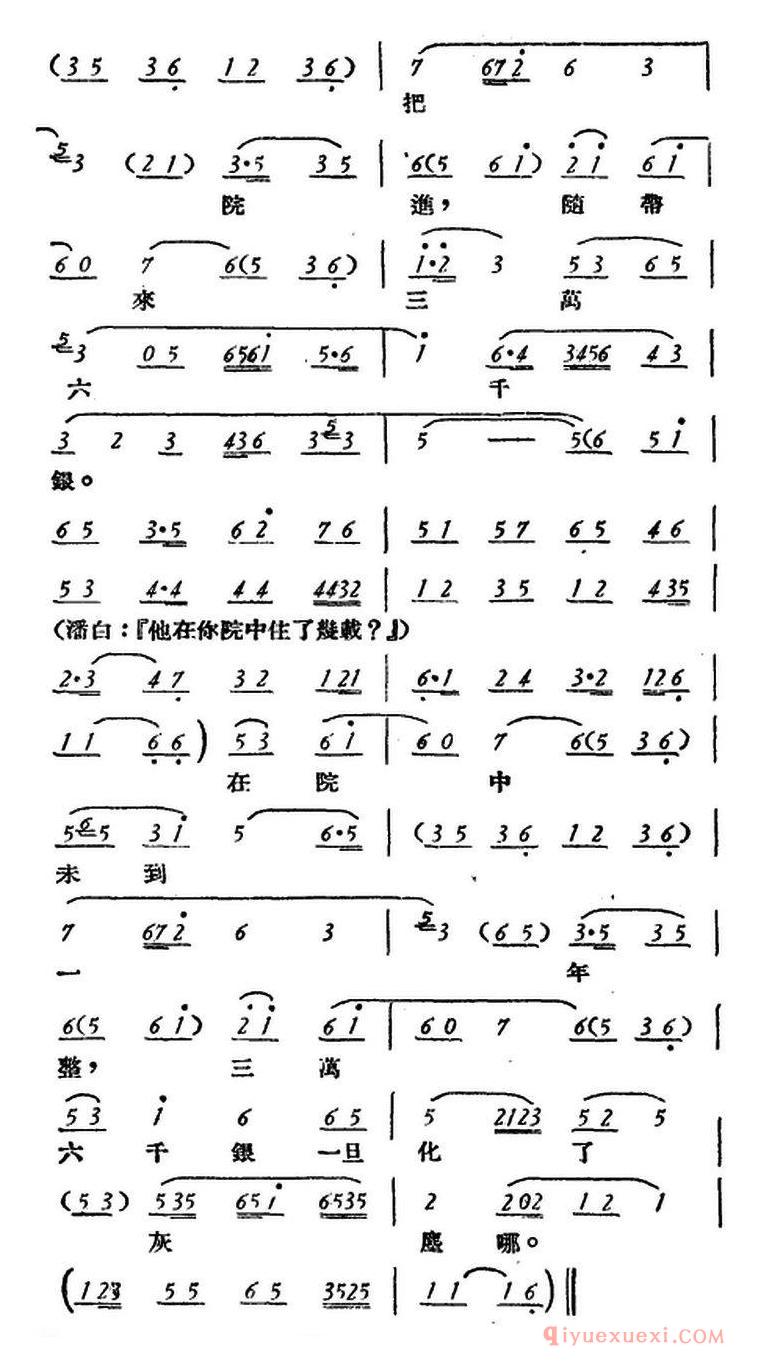 (3 5 3 6 1 2 3 6) | 7 672 6 3 |
把
5 3 (2 1) 3·5 3 5 | 6(5 6 1) 2 1 6 1 |
院 進，隨 帶
6 0 7 6(5 3 6) | 1·2 3 5 3 6 5 |
來 三 萬
5 3 0 5 6561 5·6 | 1 6·4 3456 4 3 |
六 千
3 2 3 436 3 5 3 | 5 — 5(6 5 1 |
銀。
6 5 3·5 6 2 7 6 | 5 1 5 7 6 5 4 6 |
5 3 4·4 4 4 4432 | 1 2 3 5 1 2 435 |
(潘白：『他在你院中住了幾載？』)
2·3 4 7 3 2 121 | 6·1 2 4 3·2 126 |
1 1 6 6) 5 3 6 1 | 6 0 7 6(5 3 6) |
在 院 中
5 6 5 3 1 5 6·5 | (3 5 3 6 1 2 3 6) |
未 到
7 672 6 3 | 5 3 (6 5) 3·5 3 5 |
一 年
6(5 6 1) 2 1 6 1 | 6 0 7 6(5 3 6) |
整，三 萬
5 3 1 6 6 5 | 5 2123 5 2 5 |
六 千 銀 一旦 化 了
(5 3) 535 651 6535 | 2 202 1 2 1 |
灰 塵 哪。
(123 5 5 6 5 3525 | 1 1 1 6) ‖
qiyuexuexi.com